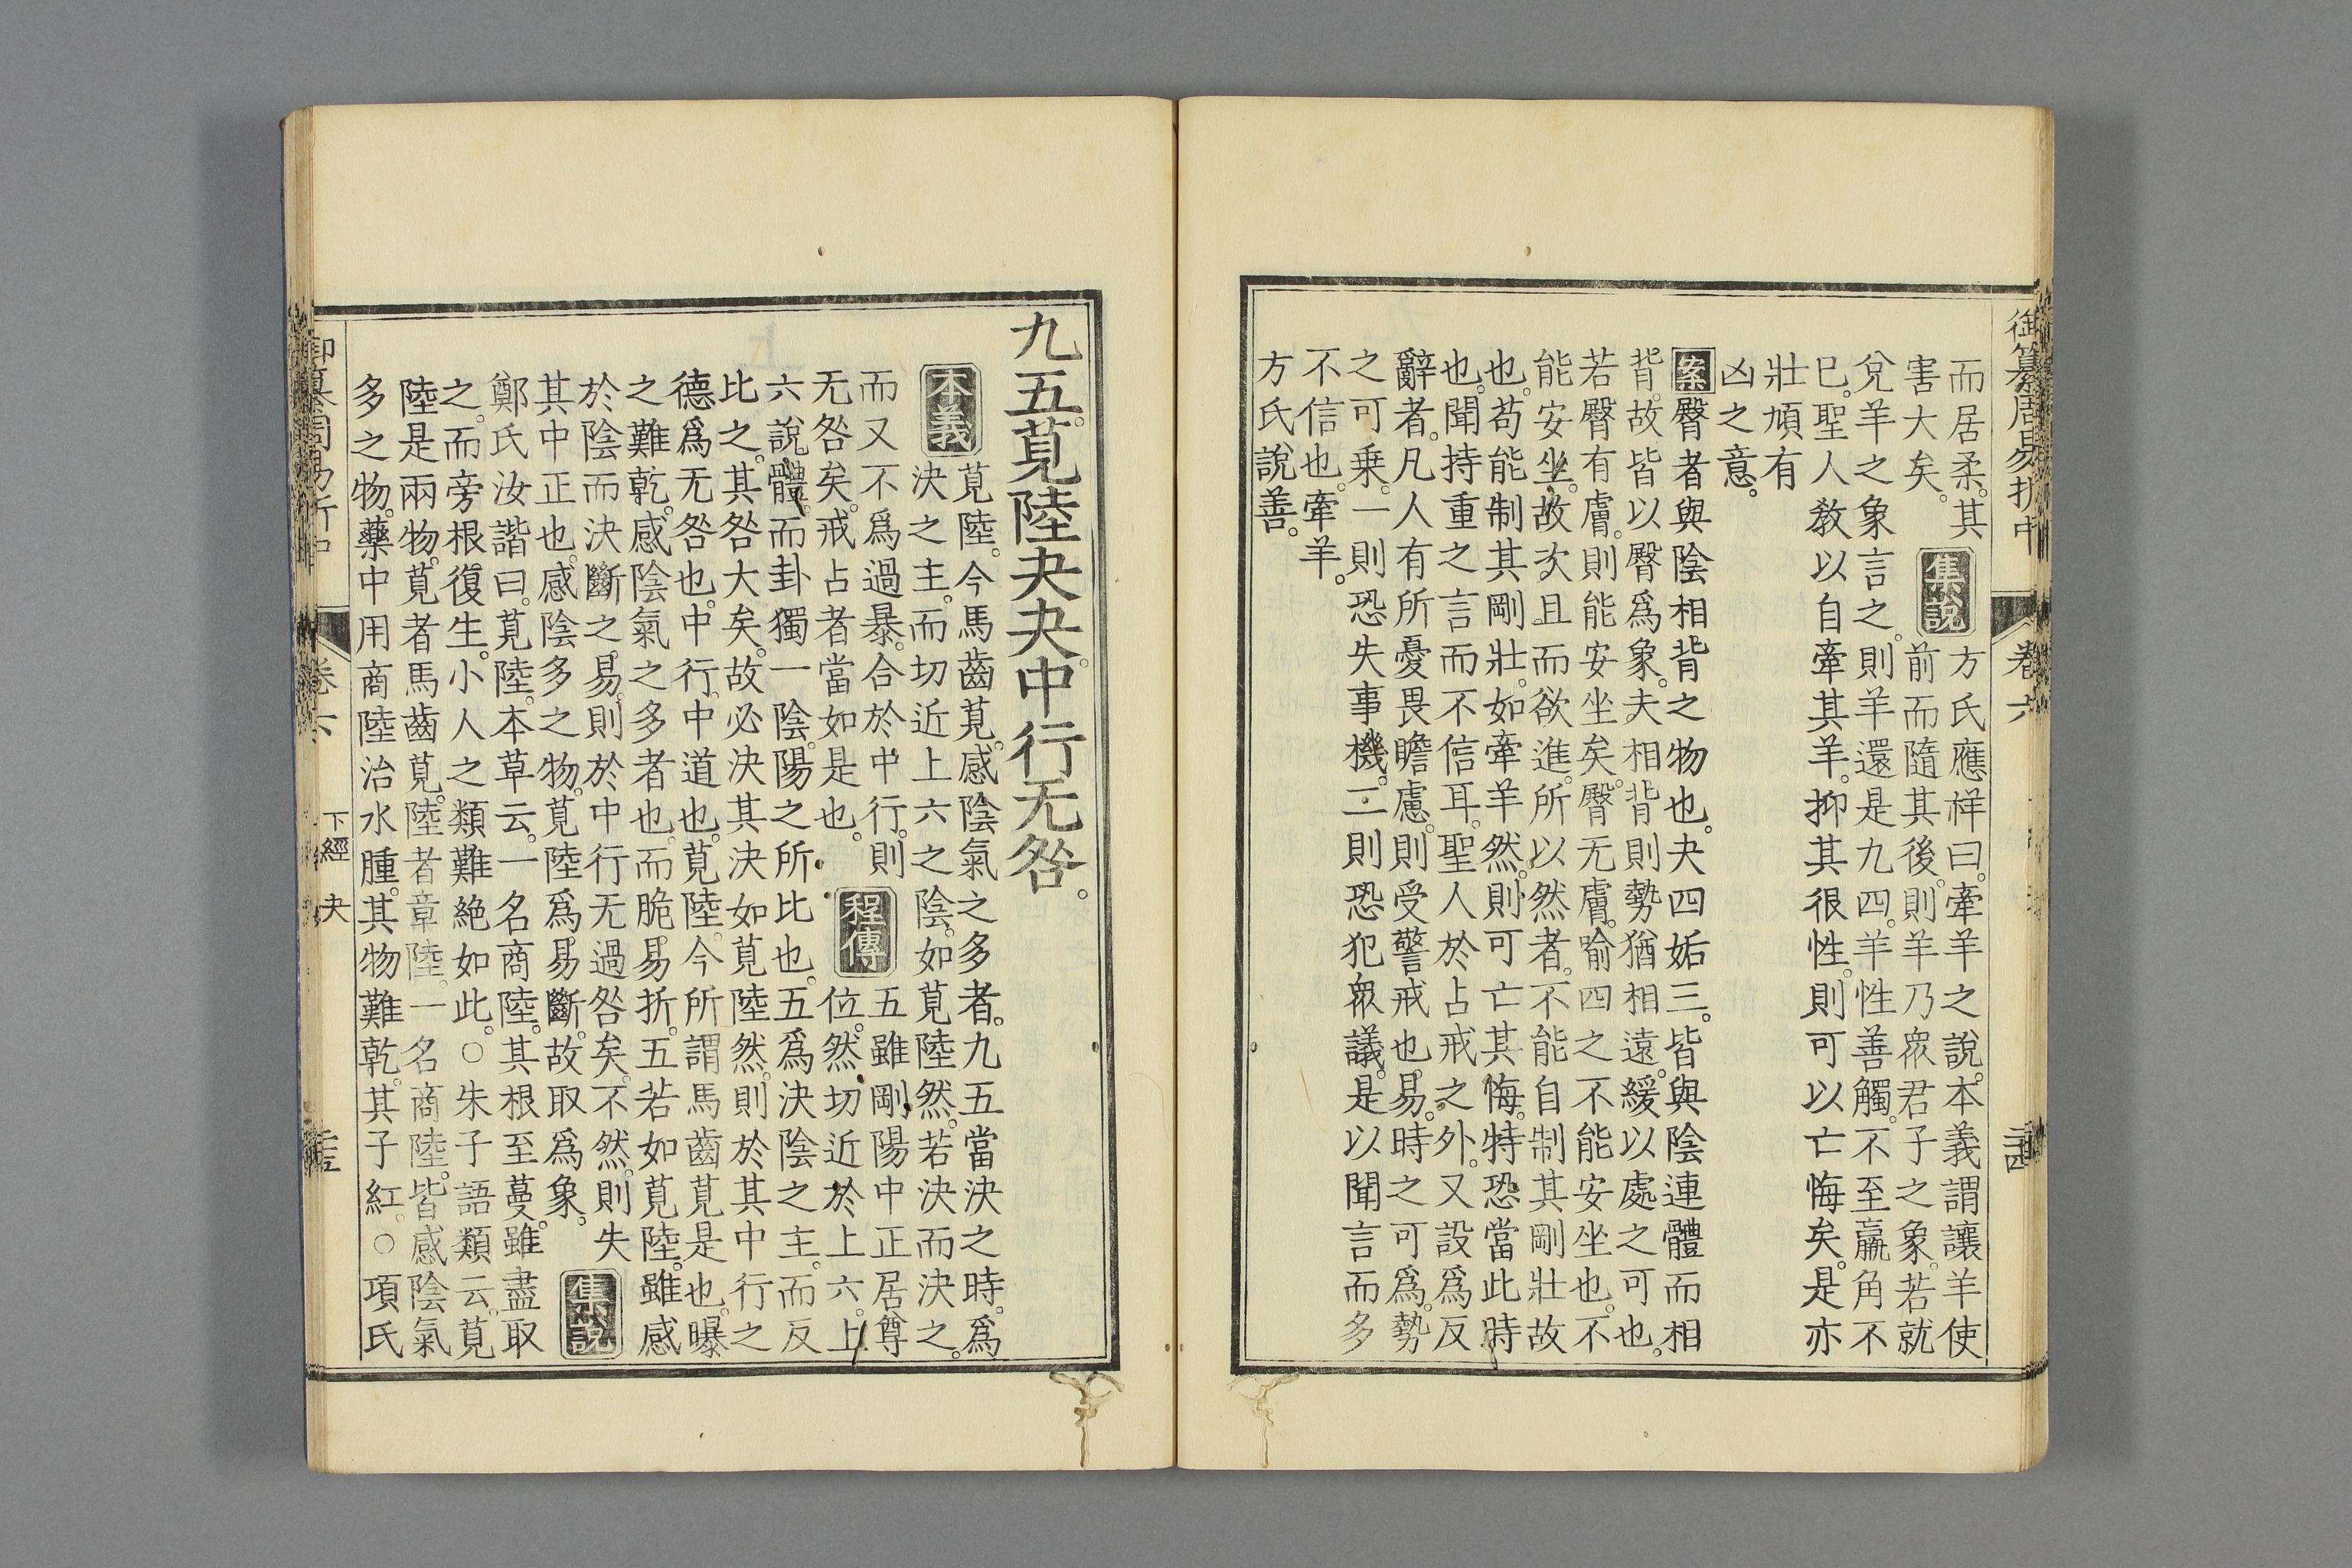 御纂周易折中 卷六 二十四
而居柔。其
害大矣。
集說
方氏應祥曰。牽羊之說。本義謂讓羊使
前而隨其後。則羊乃眾君子之象。若就
兌羊之象言之。則羊還是九四。羊性善觸。不至羸角不
已。聖人敎以自牽其羊。抑其很性。則可以亡悔矣。是亦
壯頄有
凶之意。
案臀者與陰相背之物也。夬四姤三。皆與陰連體而相
背。故皆以臀爲象。夫相背則勢猶相遠。緩以處之可也。
若臀有膚。則能安坐矣。臀无膚。喻四之不能安坐也。不
能安坐。故次且而欲進。所以然者。不能自制其剛壯故
也。苟能制其剛壯。如牽羊然。則可亡其悔。特恐當此時
也。聞持重之言而不信耳。聖人於占戒之外。又設爲反
辭者。凡人有所憂畏瞻慮。則受警戒也。易。時之可爲。勢
之可乘。一則恐失事機。二則恐犯眾議。是以聞言而多
不信也。牽羊。
方氏說善。
九五。莧陸夬夬。中行无咎。
本義
莧陸。今馬齒莧。感陰氣之多者。九五當決之時。爲
決之主。而切近上六之陰。如莧陸然。若決而決之。
而又不爲過暴。合於中行。則
无咎矣。戒占者當如是也。
程傳
五雖剛陽中正居尊
位。然切近於上六。上
六說體。而卦獨一陰。陽之所比也。五爲決陰之主。而反
比之。其咎大矣。故必決其決如莧陸然。則於其中行之
德爲无咎也。中行。中道也。莧陸。今所謂馬齒莧是也。曝
之難乾。感陰氣之多者也。而脆易折。五若如莧陸。雖感
於陰而決斷之易。則於中行无過咎矣。不然。則失
其中正也。感陰多之物。莧陸爲易斷。故取爲象。
集說
鄭氏汝諧曰。莧陸。本草云。一名商陸。其根至蔓。雖盡取
之。而旁根復生。小人之類難絕如此。○朱子語類云。莧
陸是兩物。莧者馬齒莧。陸者章陸。一名商陸。皆感陰氣
多之物。藥中用商陸治水腫。其物難乾。其子紅。○項氏
御纂周易折中 卷六 下經 夬 二十五